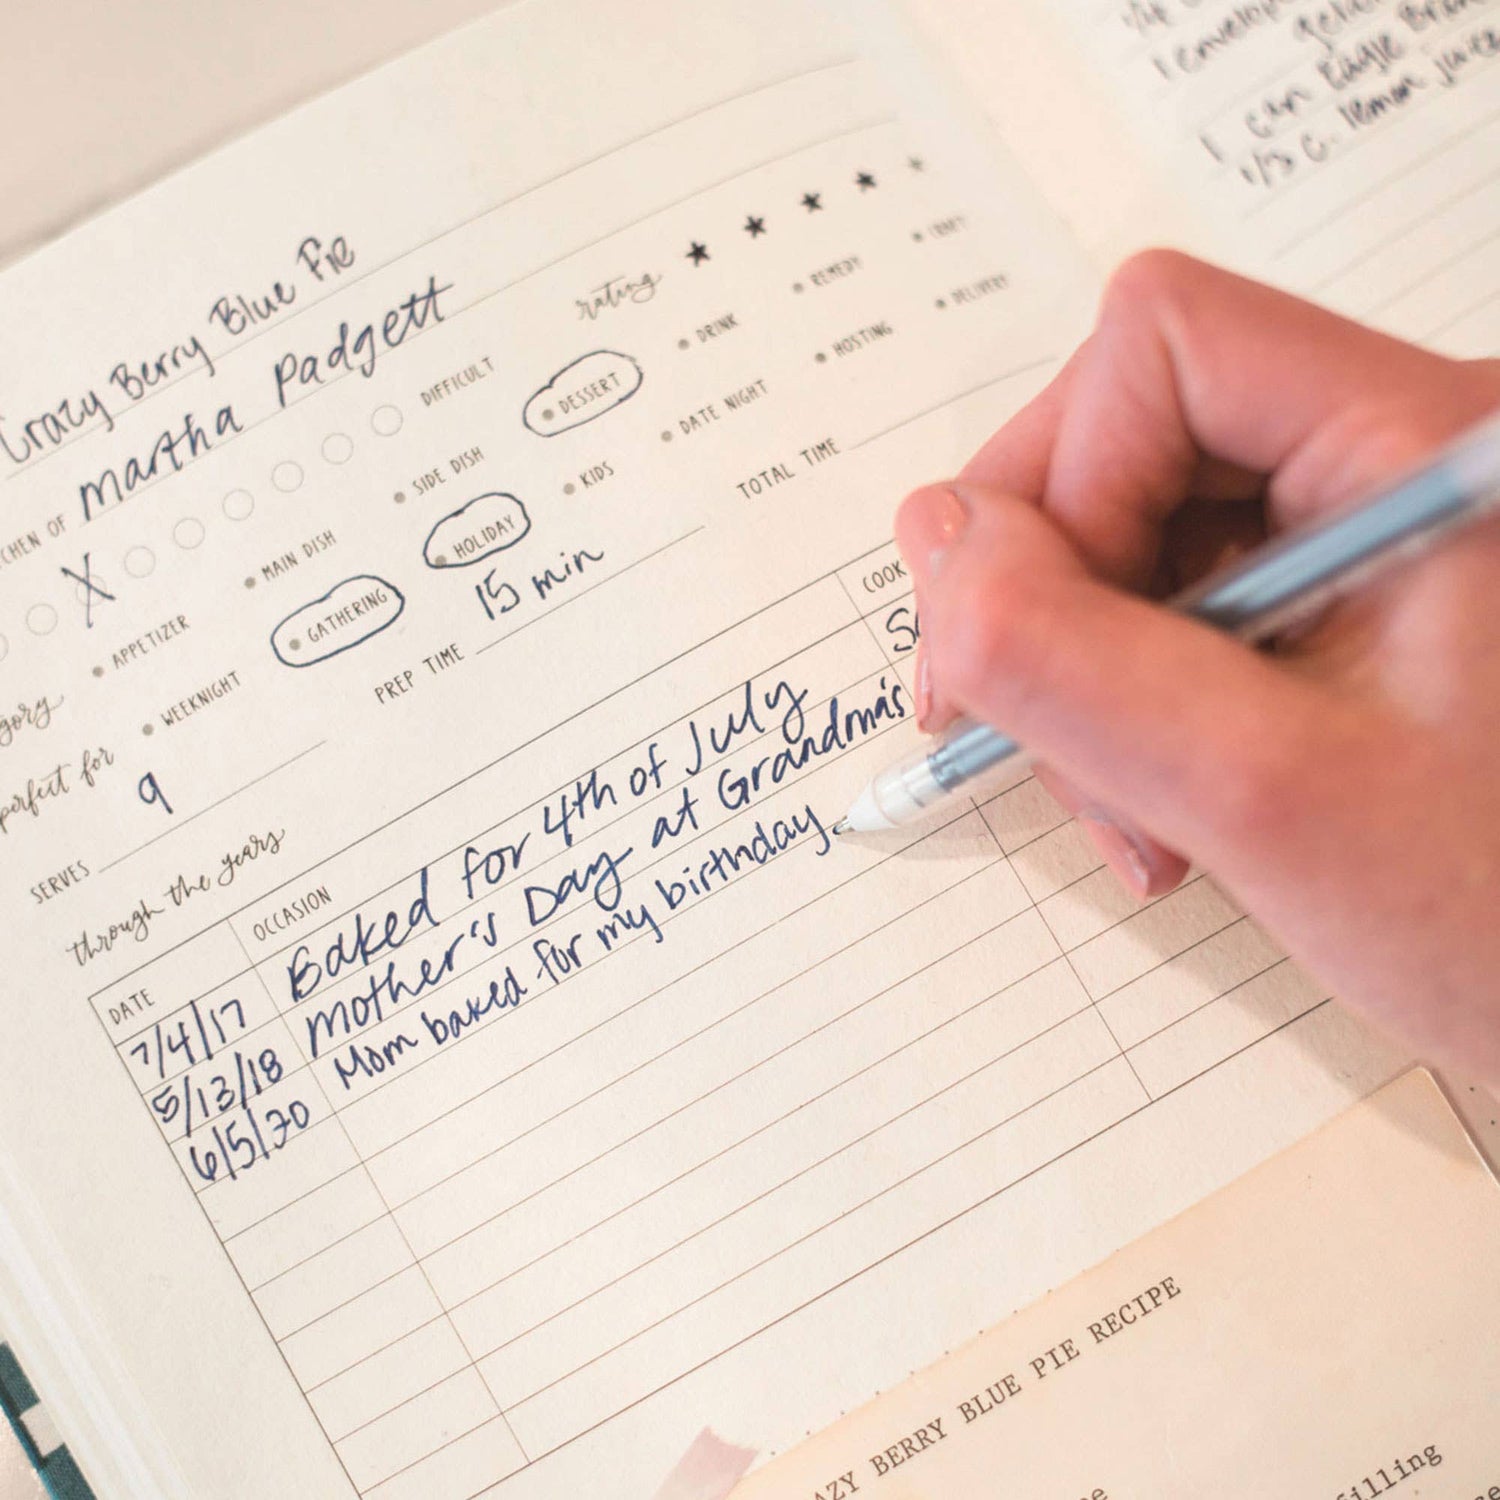 Crazy Berry Blue Pie
martha padgett
rating
DIFFICULT
APPETIZER MAIN DISH SIDE DISH DESSERT DRINK REMEDY
perfect for WEEKNIGHT GATHERING HOLIDAY KIDS DATE NIGHT HOSTING DELIVERY
SERVES 9 PREP TIME 15 min TOTAL TIME
through the years
DATE OCCASION COOK
7/4/17 Baked for 4th of July
5/13/18 Mother's Day at Grandma's
6/5/20 Mom baked for my birthday.
1 can Eagle
1/3 c. lemon juice
BERRY BLUE PIE RECIPE
filling